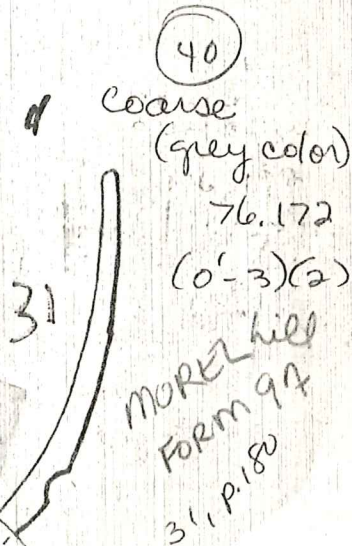 40
coarse
(grey color)
76.172
(0'-3)(2)
31
MOREL hill
FORM 9A
31, P.180